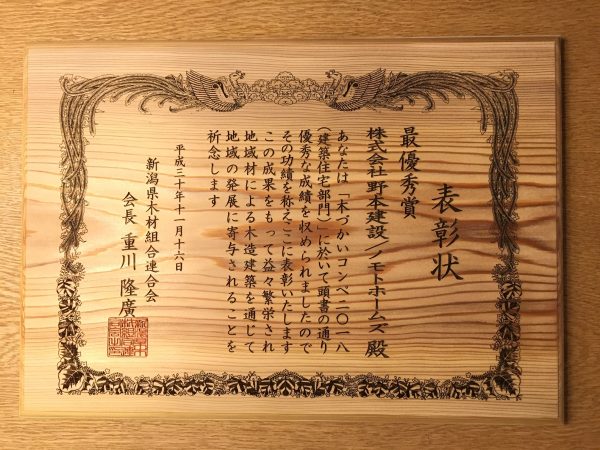 表彰状
最優秀賞
株式会社野本建設/ノモトホームズ 殿
あなたは 「木づかいコンペ二〇一八
(建築住宅部門)」に於いて頭書の通り
優秀な成績を収められましたので
その功績を称えここに表彰いたします
この成果をもって益々繁栄され
地域材による木造建築を通じて
地域の発展に寄与されることを
祈念します
平成三十年十一月十六日
新潟県木材組合連合会
会長 重川 隆廣